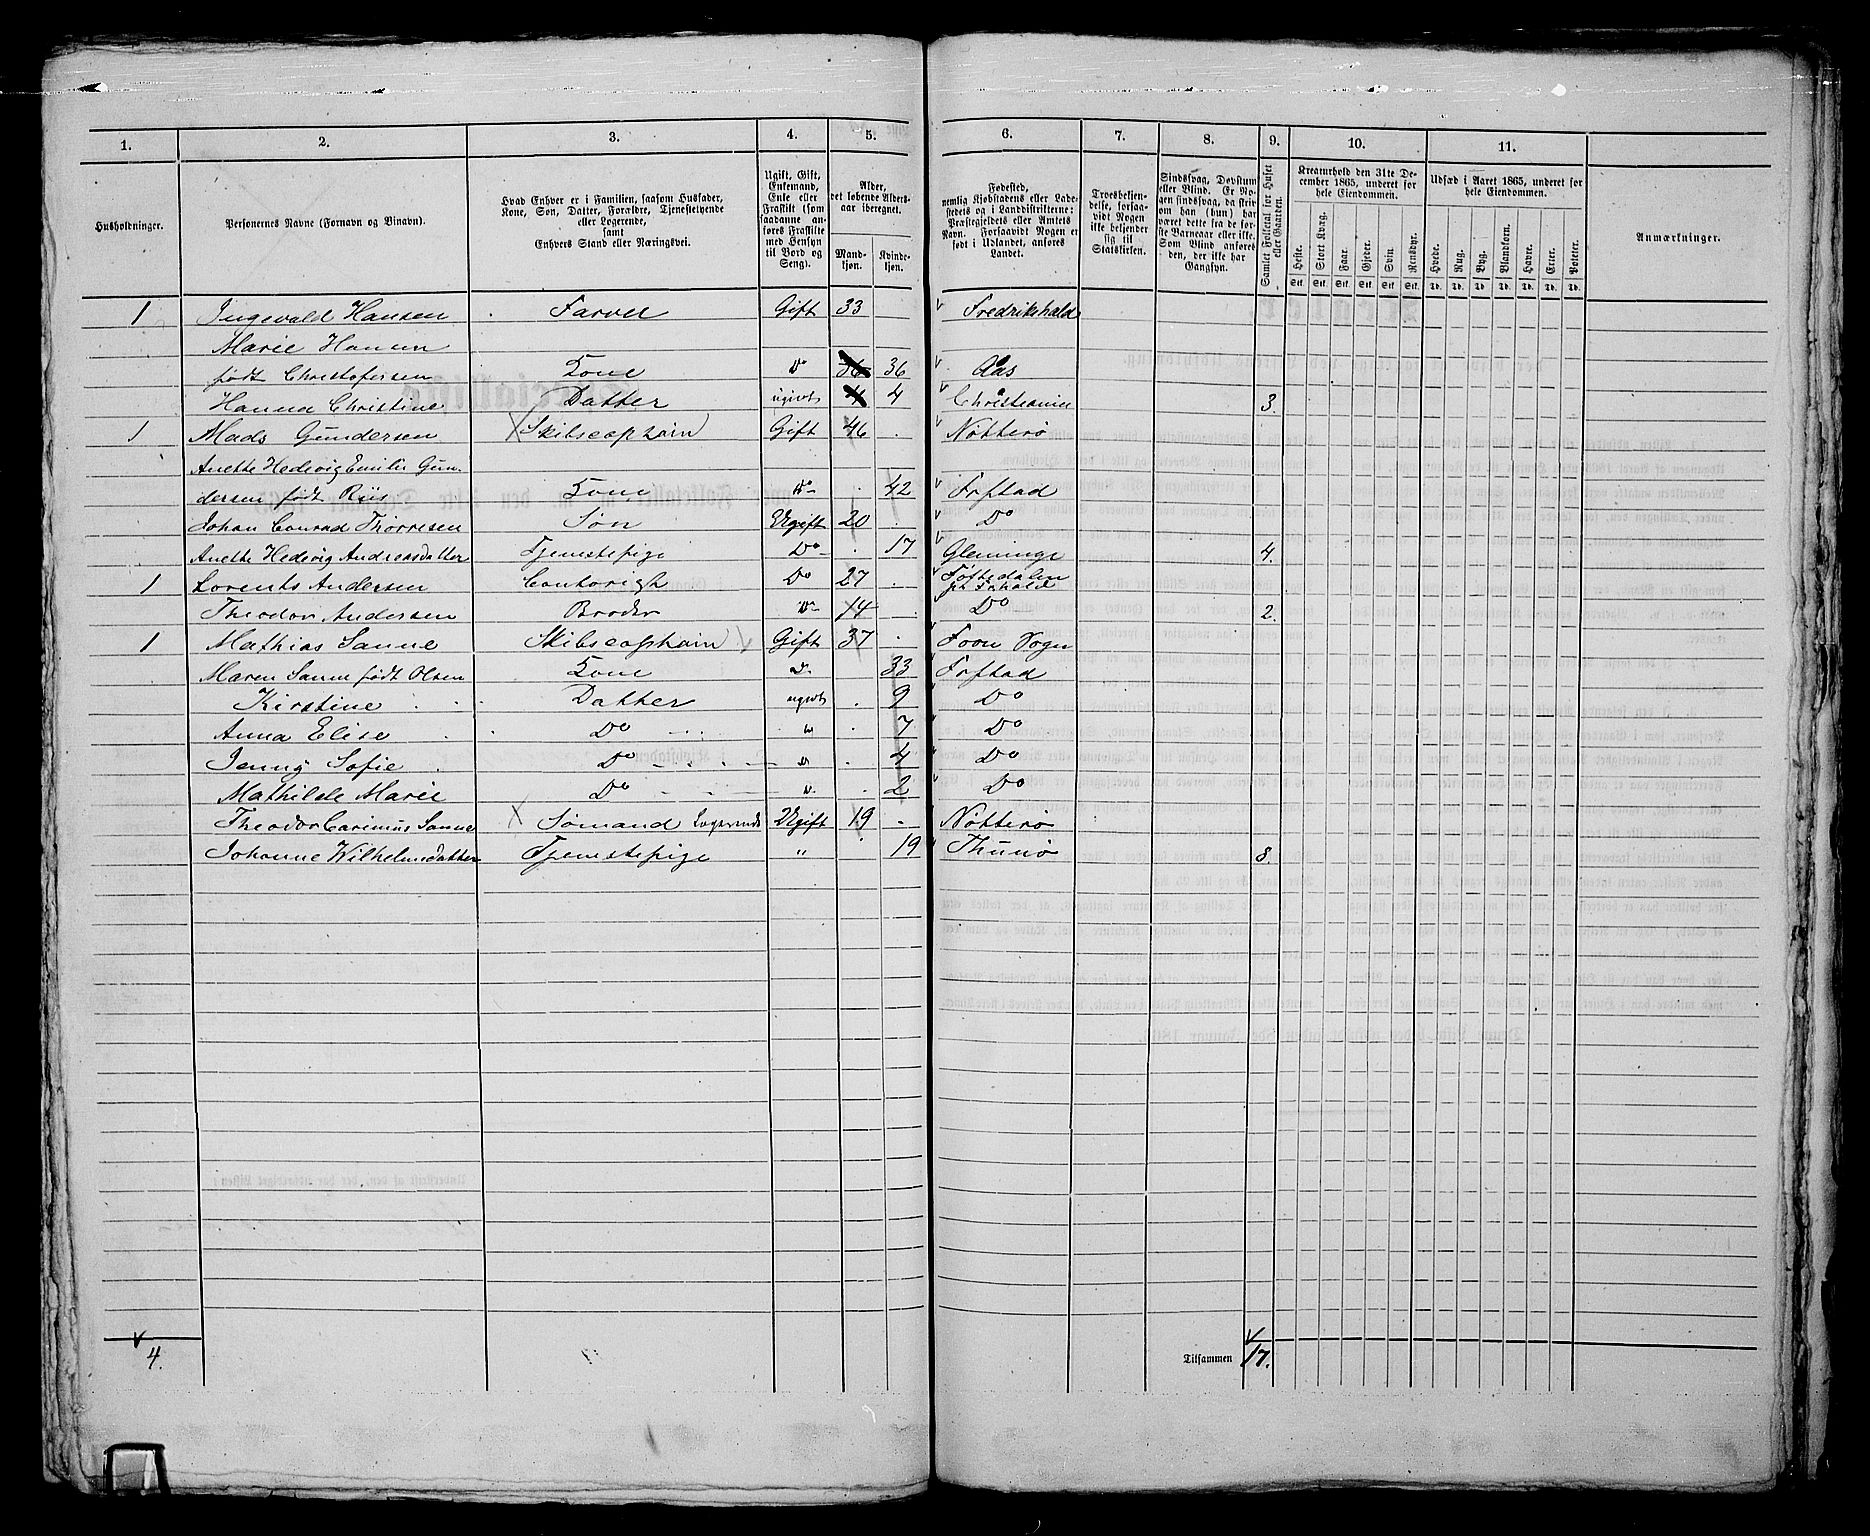 1. 2. 3. 4. 5. 6. 7. 8. 9. 10. 11.
Husholdninger.
Personernes Navne (Fornavn og Binavn).
Hvad Enhver er i Familien, saasom Husfader,
Kone, Søn, Datter, Forældre, Tjenstetyende
eller Logerende,
samt
Enhvers Stand eller Næringsvei.
Ugift, Gift,
Enkemand,
Enke eller
Fraskilt (som
saadanne anføres Fraskilte
med Hensyn
til Bord og
Seng).
Alder,
det løbende Alders-
aar iberegnet.
Mand-
kjøn.
Kvinde-
kjøn.
Fødested,
nemlig Kjøbstadens eller Lade-
stedets og i Landdistrikterne:
Præstegjeldets eller Amtets
Navn. Forsaavidt Nogen er
født i Udlandet, anføres
Landet.
Troesbekjen-
delse, forsaa-
vidt Nogen
ikke bekjender
sig til
Statskirken.
Sindssvag, Døvstum
eller Blind. Er No-
gen sindssvag, da skri-
ves om han (hun) har
været dette fra de før-
ste Barneaar eller ikke.
Som Blind anføres
den, der ikke har
Gangsyn.
Samlet Folketal for Huset
eller Gaarden.
Kreaturhold den 31te De-
cember 1865, underet for
hele Eiendommen.
Heste. Stort Kvæg. Faar. Gjeder. Svin Rensdyr.
Stk. Stk. Stk. Stk. Stk. Stk.
Udsæd i Aaret 1865, underet for
hele Eiendommen.
Hvede. Rug. Byg. Blandkorn. Havre. Erter. Poteter.
Td. Td. Td. Td. Td. Td. Td.
Anmærkninger.
1 Ingevald Hansen Farver Gift 33 Fredrikshald
Marie Hansen
født Christofersen Kone Do 36 36 Aas
Hanna Christine Datter ugivt 4 4 Christiania 3.
1 Mads Gundersen Skibscaptain Gift 46 Nøtterø
Anette Hedevig Emilie Gun-
dersen født Riis Kone Do 42 Frstad
Johan Conrad Thorresen Søn Ugift 20 Do
Anette Hedevig Andreasdatter Tjenstepige Do 17 Glemminge 4.
1 Lorents Andersen Contorist Do 27
Theodor Andersen Broder Do 14 Do 2.
1 Mathias Sanne Skibscaptain Gift 37 Foen Sogn
Maren Sanne født Olsen Kone Do 33 Frstad
Kirstine Datter ugivt 9 Do
Anna Elise Do " 7 Do
Jenny Sofie Do " 4 Do
Mathilde Marie Do " 2 Do
Theodor Carinius Sanne Sømand Logerende Ugift 19 Nøtterø
Johanne Wilhelmsdatter Tjenstepige " 19 Thunø 8.
4.
Tilsammen 17.